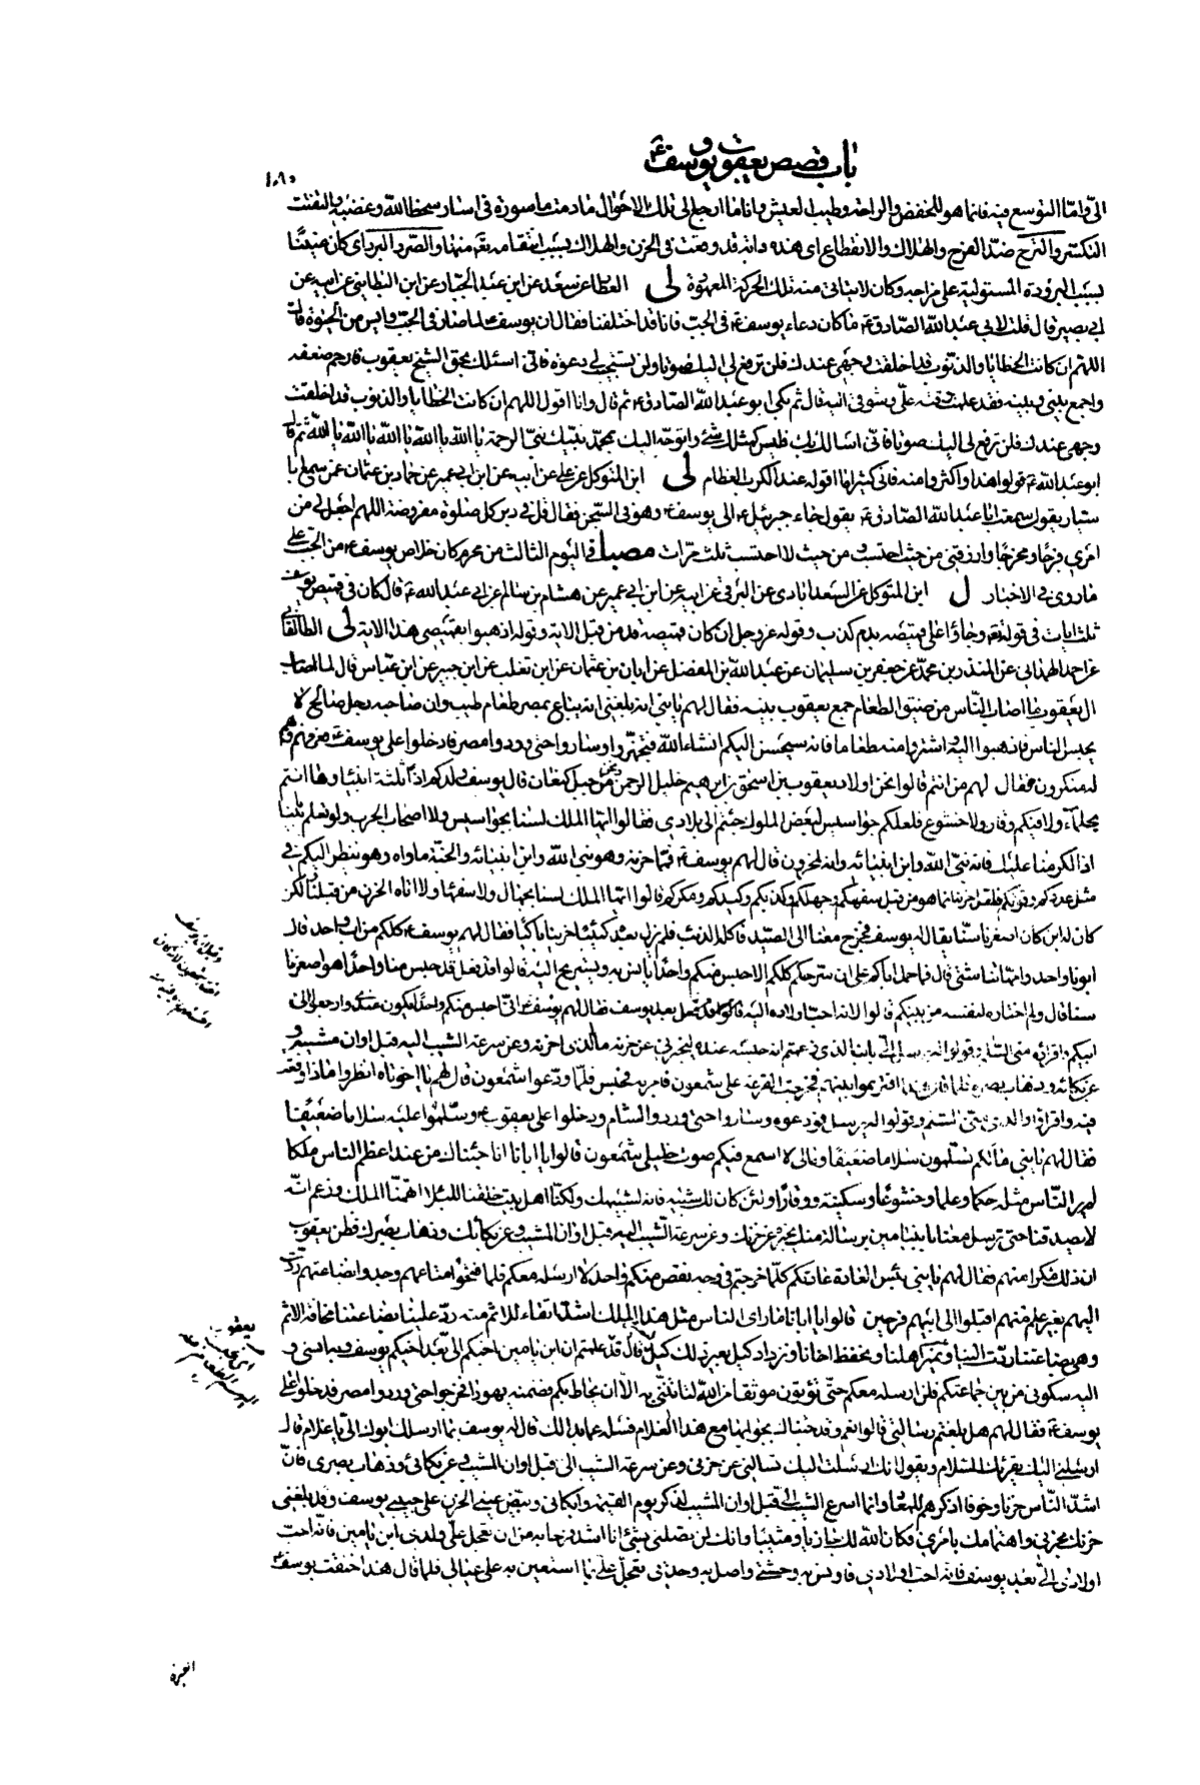 باب قصص يعقوب ويوسف ع
١٨٥
الىّ وامّا التوسع فيه فانما هو للخفض والراحة وطيب العيش وانا ما ارجع الى تلك الاحوال ما دمت ماسورة في اسار سخط الله وغضبه والتفتت
التكسر والترح ضدّ الفرح والهلاك والانقطاع اى هذه دابة قد وقعت في الحزن والهلاك بسبب انتقامه تعالى منها والصرد البرد اى كان ضيقنا
بسبب البرودة المستولية على مزاجه وكان لا يتاتى منه تلك الحركة المعهودة لى العطار عن سعد عن ابن عبد الجبار عن ابن البطايني عن ابيه عن
ابي بصير قال قلت لابي عبد الله الصادق ع ما كان دعاء يوسف ع في الجب فانا قد اختلفنا فقال ان يوسف ع لما صار في الجب وايس من الحيوة قال
اللهم ان كانت الخطايا والذنوب قد اخلقت وجهي عندك فلن ترفع لي اليك صوتا ولن تستجيب لي دعوة فاني اسئلك بحق الشيخ يعقوب فارحم ضعفه
واجمع بيني وبينه فقد علمت رقته علىّ وشوقي اليه قال ثم بكى ابو عبد الله الصادق ع ثم قال وانا اقول اللهم ان كانت الخطايا والذنوب قد اخلقت
وجهي عندك فلن ترفع لي اليك صوتا فاني اسالك بك فليس كمثلك شئ واتوجه اليك بمحمد نبيك نبي الرحمة يا الله يا الله يا الله يا الله يا الله ثم قال
ابو عبد الله ع قولوا هذا واكثروا منه فاني كثيرا ما اقوله عند الكرب العظام لى ابن المتوكل عن علي عن ابيه عن ابن ابي عمير عن حماد بن عثمان عن سمع ابا
سيار يقول سمعت ابا عبد الله الصادق ع يقول جاء جبرئيل ع الى يوسف ع وهو في السجن فقال قل في دبر كل صلوة مفروضة اللهم اجعل لي من
امري فرجا ومخرجا وارزقني من حيث احتسب ومن حيث لا احتسب ثلث مرات مصبا في اليوم الثالث من محرم كان خلاص يوسف ع من الجب على
ما روي في الاخبار ل ابن المتوكل عن السعدابادي عن البرقي عن ابيه عن ابن ابي عمير عن هشام بن سالم عن ابي عبد الله ع قال كان في قميص يوسف
ثلث ايات في قوله تع وجاؤا على قميصه بدم كذب وقوله عز وجل ان كان قميصه قد من قبل الاية وقوله اذهبوا بقميصي هذا الاية لى الطالقاني
عن احمد الهمداني عن المنذر بن محمد عن جعفر بن سليمان عن عبد الله بن الفضل عن ابان بن عثمان عن ابن تغلب عن ابن جبير عن ابن عباس قال لما اصاب
ال يعقوب ما اصاب الناس من ضيق الطعام جمع يعقوب بنيه فقال لهم يا بني انه بلغني انه يباع بمصر طعام طيب وان صاحبه رجل صالح لا
يحبس الناس فاذهبوا اليه واشتروا منه طعاما فانه سيحسن اليكم انشاء الله فتجهزوا وساروا حتى وردوا مصر فادخلوا على يوسف ع فعرفهم وهم
له منكرون فقال لهم من انتم قالوا نحن اولاد يعقوب بن اسحق بن ابرهيم خليل الرحمن ونحن من جبل كنعان قال يوسف ولدكم اذا ثلثة انبياء وما انتم
بحلماء ولا فيكم وقار ولا خشوع فلعلكم جواسيس لبعض الملوك جئتم الى بلادي فقالوا ايها الملك لسنا بجواسيس ولا اصحاب الحرب ولو تعلم بابينا
اذا لكرمنا عليك فانه نبي الله وابن انبيائه وانه لمحزون قال لهم يوسف ع فمما حزنه وهو نبي الله وابن انبيائه والجنة ماواه وهو ينظر اليكم في
مثل عددكم وقوتكم فلعل حزنه انما هو من قبل سفهكم وجهلكم وكذبكم وكيدكم ومكركم قالوا ايها الملك لسنا بجهال ولا سفهاء ولا اتاه الحزن من قبلنا ولكن
كان له ابن كان اصغرنا سنا يقال له يوسف فخرج معنا الى الصيد فاكله الذئب فلم يزل بعده كئيبا حزينا باكيا فقال لهم يوسف ع كلكم من اب واحد قالوا
ابونا واحد وامهاتنا شتى قال فما حمل اباكم على ان سرحكم كلكم الا حبس منكم واحدا يانس به ويستريح اليه قالوا قد فعل قد حبس منا واحدا هو اصغرنا
سنا قال ولم اختاره لنفسه من بينكم قالوا لانه احب اولاده اليه بعد يوسف فقال لهم يوسف ع اني احبس منكم واحدا يكون عندي وارجعوا الى
ابيكم واقراوه مني السلام وقولوا له يرسل الىّ بابنه الذي زعمتم انه حبسه عنده ليخبرني عن حزنه ما الذي احزنه وعن سرعة الشيب اليه قبل اوان مشيبه و
عن بكائه وذهاب بصره فلما قال هذا اقترعوا بينهم فخرجت القرعة على شمعون فامر به فحبس فلما ودعوا شمعون قال لهم يا اخوتاه انظروا ماذا وقعت
فيه واقراوا والدي مني السلم فودعوه وساروا حتى وردوا الشام ودخلوا على يعقوب ع وسلموا عليه سلاما ضعيفا
فقال لهم يا بني ما لكم تسلمون سلاما ضعيفا ومالي لا اسمع فيكم صوت خليلي شمعون قالوا يا ابانا انا جئناك من عند اعظم الناس ملكا
لم ير الناس مثله حكما وعلما وخشوعا وسكينة ووقارا ولئن كان لك شبيه فانه لشبيهك ولكنا اهل بيت خلقنا للبلاء اتهمنا الملك وزعم انه
لا يصدقنا حتى ترسل معنا ابن يامين برسالة منك يخبره عن حزنك وعن سرعة الشيب اليك قبل اوان المشيب وعن بكائك وذهاب بصرك فظن يعقوب
ان ذلك مكرا منهم فقال لهم يا بني بئس العادة عادتكم كلما خرجتم في وجه نقص منكم واحد لا ارسله معكم فلما فتحوا متاعهم وجدوا بضاعتهم ردت
اليهم بغير علم منهم اقبلوا الى ابيهم فرحين قالوا يا ابانا ما راى الناس مثل هذا الملك اشد اتقاء للاثم منه رد علينا بضاعتنا مخافة الاثم
وهي بضاعتنا ردت الينا ونمير اهلنا ونحفظ اخانا ونزداد كيل بعير ذلك كيل يسير قال قد علمتم ان ابن يامين احبكم الىّ بعد اخيكم يوسف وبه انسي و
اليه سكوني من بين جماعتكم فلن ارسله معكم حتى تؤتون موثقا من الله لتاتنني به الا ان يحاط بكم فضمنه يهودا فخرجوا حتى وردوا مصر فدخلوا على
يوسف ع فقال لهم هل بلغتم رسالتي قالوا نعم وقد جئناك بجوابها مع هذا الغلام فسله عما بدا لك قال له يوسف بما ارسلك ابوك الىّ يا غلام قال
ارسلني اليك يقرئك السلام ويقول انك ارسلت الىّ تسالني عن حزني وعن سرعة الشيب الىّ قبل اوان المشيب وعن بكائي وذهاب بصري فان
اشد الناس حزنا وخوفا اذكرهم للمعاد وانما اسرع الشيب الىّ قبل اوان المشيب لذكر يوم القيمة وابكاني وبيض عيني الحزن على حبيبي يوسف وقد بلغني
حزنك بحزني واهتمامك بامري فكان الله لك جازيا ومثيبا وانك لن تصلني بشئ انا اشد فرحا به من ان تعجل علىّ ولدي ابن يامين فانه احب
اولادي الىّ بعد يوسف فاونس به وحشتي واصل به وحدتي وتعجل علىّ بما استعين به على عيالي فلما قال هذا خنقت يوسف ع
العبرة